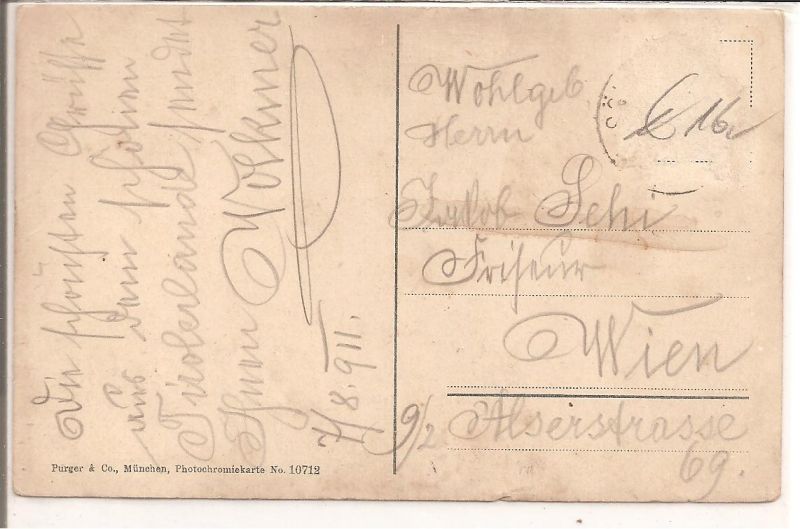 Die schönsten Grüsse
aus dem schönen
Tirolerlande sendet
Ihnen Volkmer
7/8. 911.
Wohlgeb
Herrn
Jakob Sehi
Friseur
Wien
9/2 Alserstrasse
69.
Purger & Co., München, Photochromiekarte No. 10712